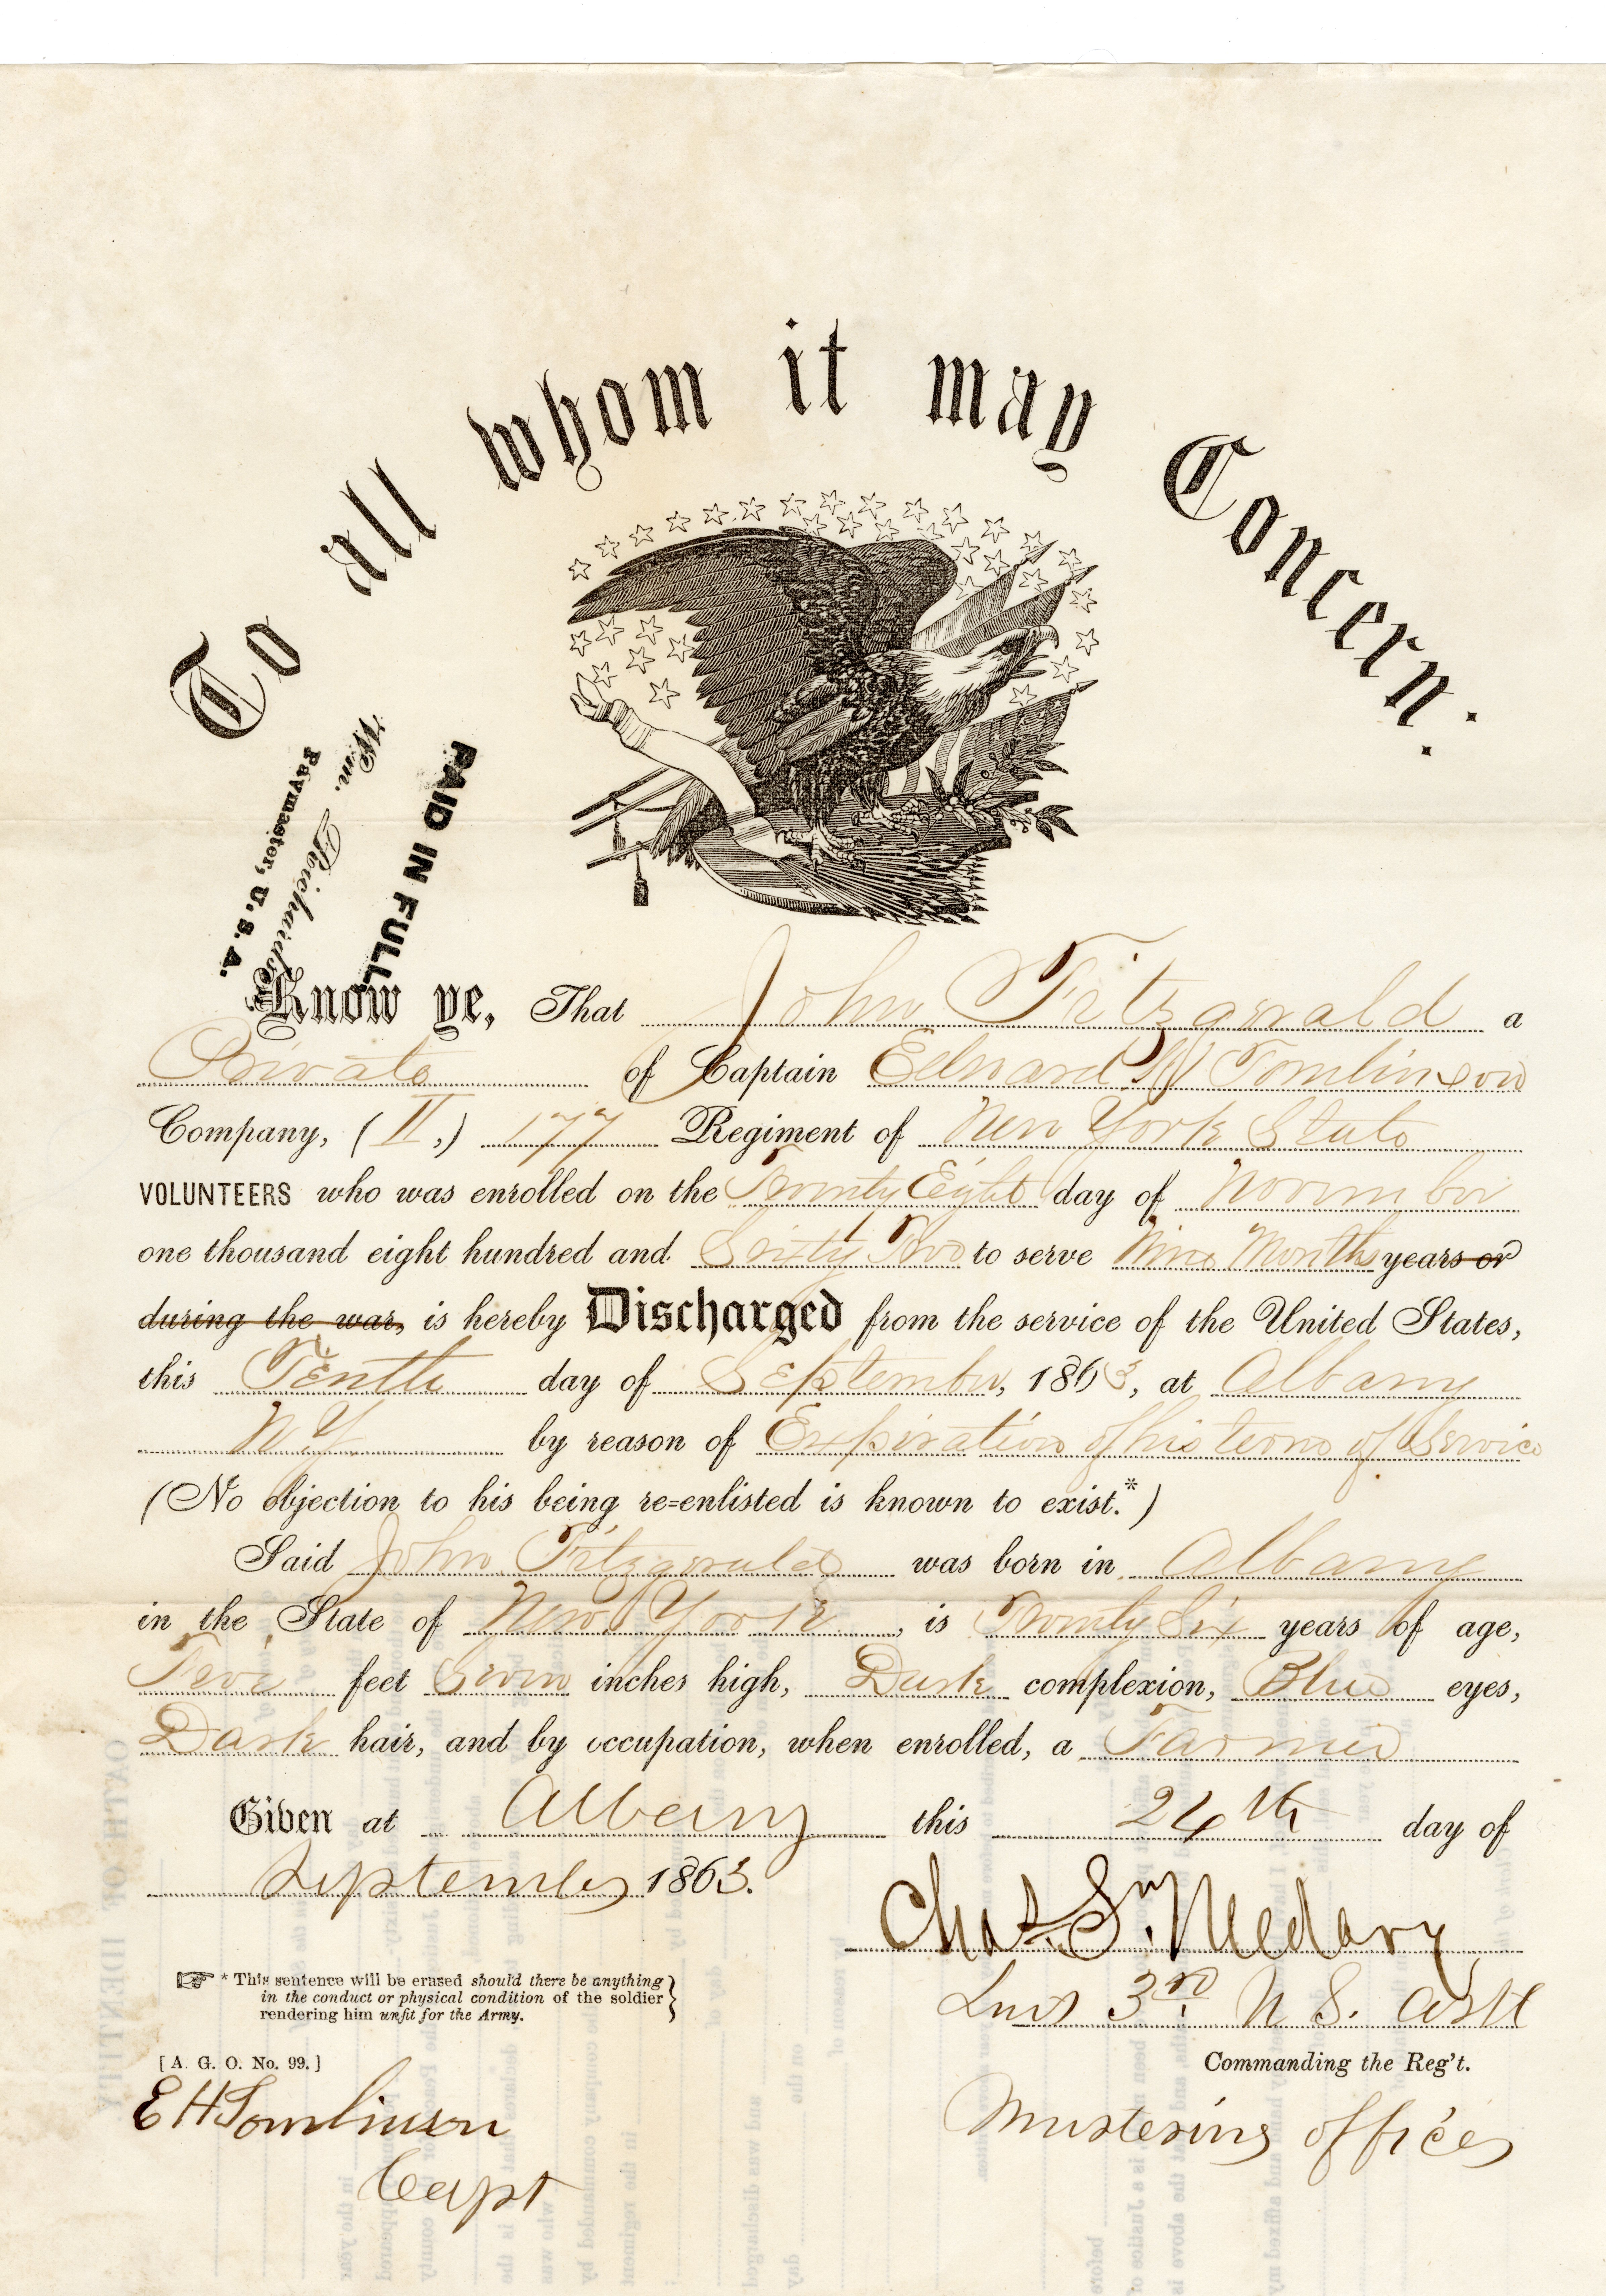 To all whom it may Concern:
PAID IN FULL
Wm. Richards
Paymaster, U. S. A.
Know ye, That John Fitzgerald a
Private of Captain Edward H Tomlinson
Company, ( ,) 177 Regiment of New York State
VOLUNTEERS who was enrolled on the Twenty Eight day of November
one thousand eight hundred and Sixty Two to serve Nine Months years or
during the war, is hereby Discharged from the service of the United States,
this Tenth day of September, 1863, at Albany
N Y. by reason of Expiration of his term of Service
(No objection to his being re=enlisted is known to exist.*)
Said John Fitzgerald was born in Albany
in the State of New York, is Twenty Six years of age,
Five feet Seven inches high, Dark complexion, Blue eyes,
Dark hair, and by occupation, when enrolled, a Farmer
Given at Albany this 24th day of
September 1863.
Chas. S. Medary
* This sentence will be erased should there be anything
in the conduct or physical condition of the soldier
rendering him unfit for the Army.
3rd U S. Art
[A. G. O. No. 99.]
Commanding the Reg't.
E H Tomlinson
Capt
Mustering officer
OATH OF IDENTITY